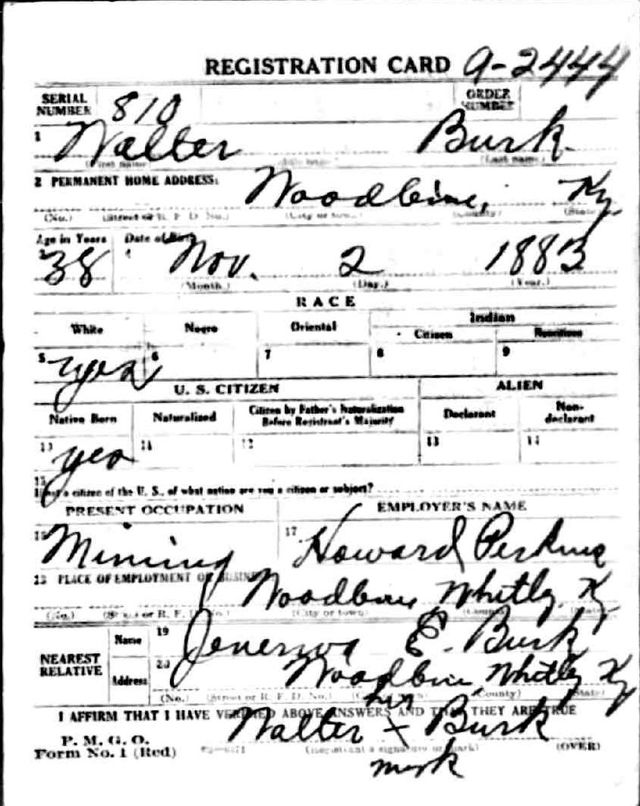 REGISTRATION CARD 9-2444
SERIAL NUMBER 810 ORDER NUMBER
1 Walter Burk
(First name) (Last name)
2 PERMANENT HOME ADDRESS: Woodbine, Ky
(No.) (Street or R. F. D. No.) (City or town) (County) (State)
Age in Years Date of Birth
38 Nov. 2 1883
(Month.) (Day.) (Year.)
RACE
White Negro Oriental Indian
Citizen Noncitizen
5 yes 6 7 8 9
U. S. CITIZEN ALIEN
Native Born Naturalized Citizen by Father's Naturalization Before Registrant's Majority Declarant Non-declarant
10 yes 11 12 13 14
15 If not a citizen of the U. S., of what nation are you a citizen or subject?
PRESENT OCCUPATION EMPLOYER'S NAME
16 Mining 17 Howard Perkins
18 PLACE OF EMPLOYMENT OR BUSINESS Woodbine Whitly Ky
(No.) (Street or R. F. D. No.) (City or town) (County) (State)
NEAREST RELATIVE Name 19 Jenerva E. Burk
Address 20 Woodbine Whitly Ky
(No.) (Street or R. F. D. No.) (City or town) (County) (State)
I AFFIRM THAT I HAVE VERIFIED ABOVE ANSWERS AND THAT THEY ARE TRUE
his
P. M. G. O. Walter x Burk
Form No. 1 (Red) (Registrant's signature or mark) (OVER)
mark